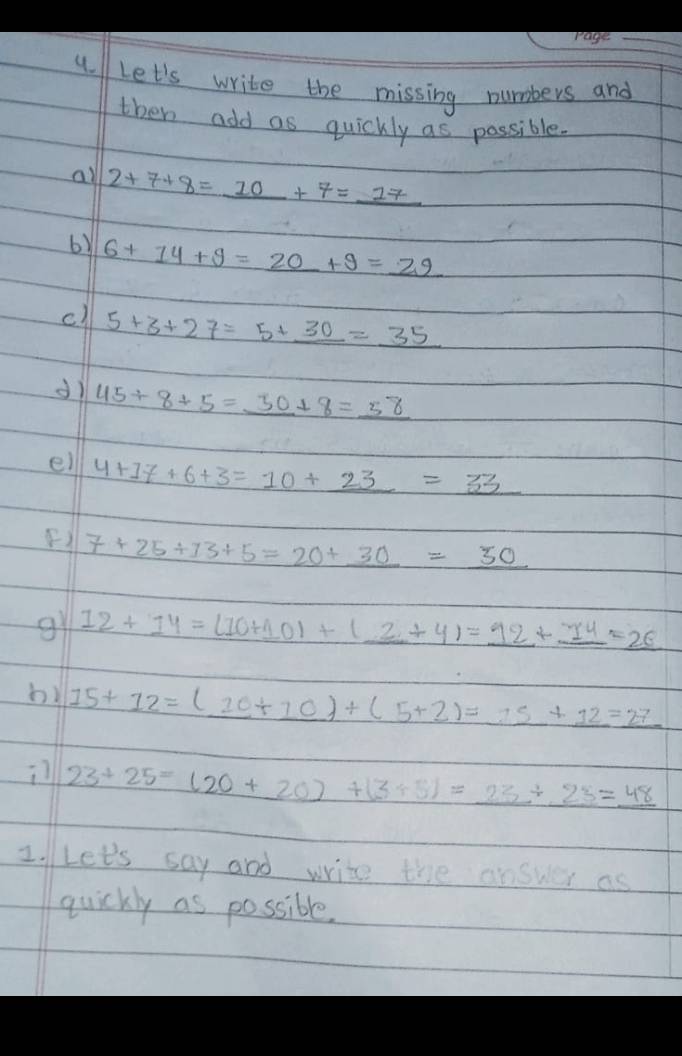 Page
4. Let's write the missing numbers and
then add as quickly as possible.
a) 2+7+8= 10 + 7= 17
b) 6+ 14+9 = 20 +9 = 29
c) 5+3+27= 5+ 30 = 35
d) 45+ 8+5 = 50+8= 58
e) 4+17+6+3= 10 + 23 = 33
f) 7+25+13+5= 20+ 30 = 50
g) 12+ 14=(10+10)+( 2+4)= 12+ 14 =26
h) 15+ 12=( 10+10)+( 5+2)= 15 + 12=27
i) 23+ 25= (20+ 20) +(3+5) = 23+ 25= 48
1. Let's say and write the answer as
quickly as possible.